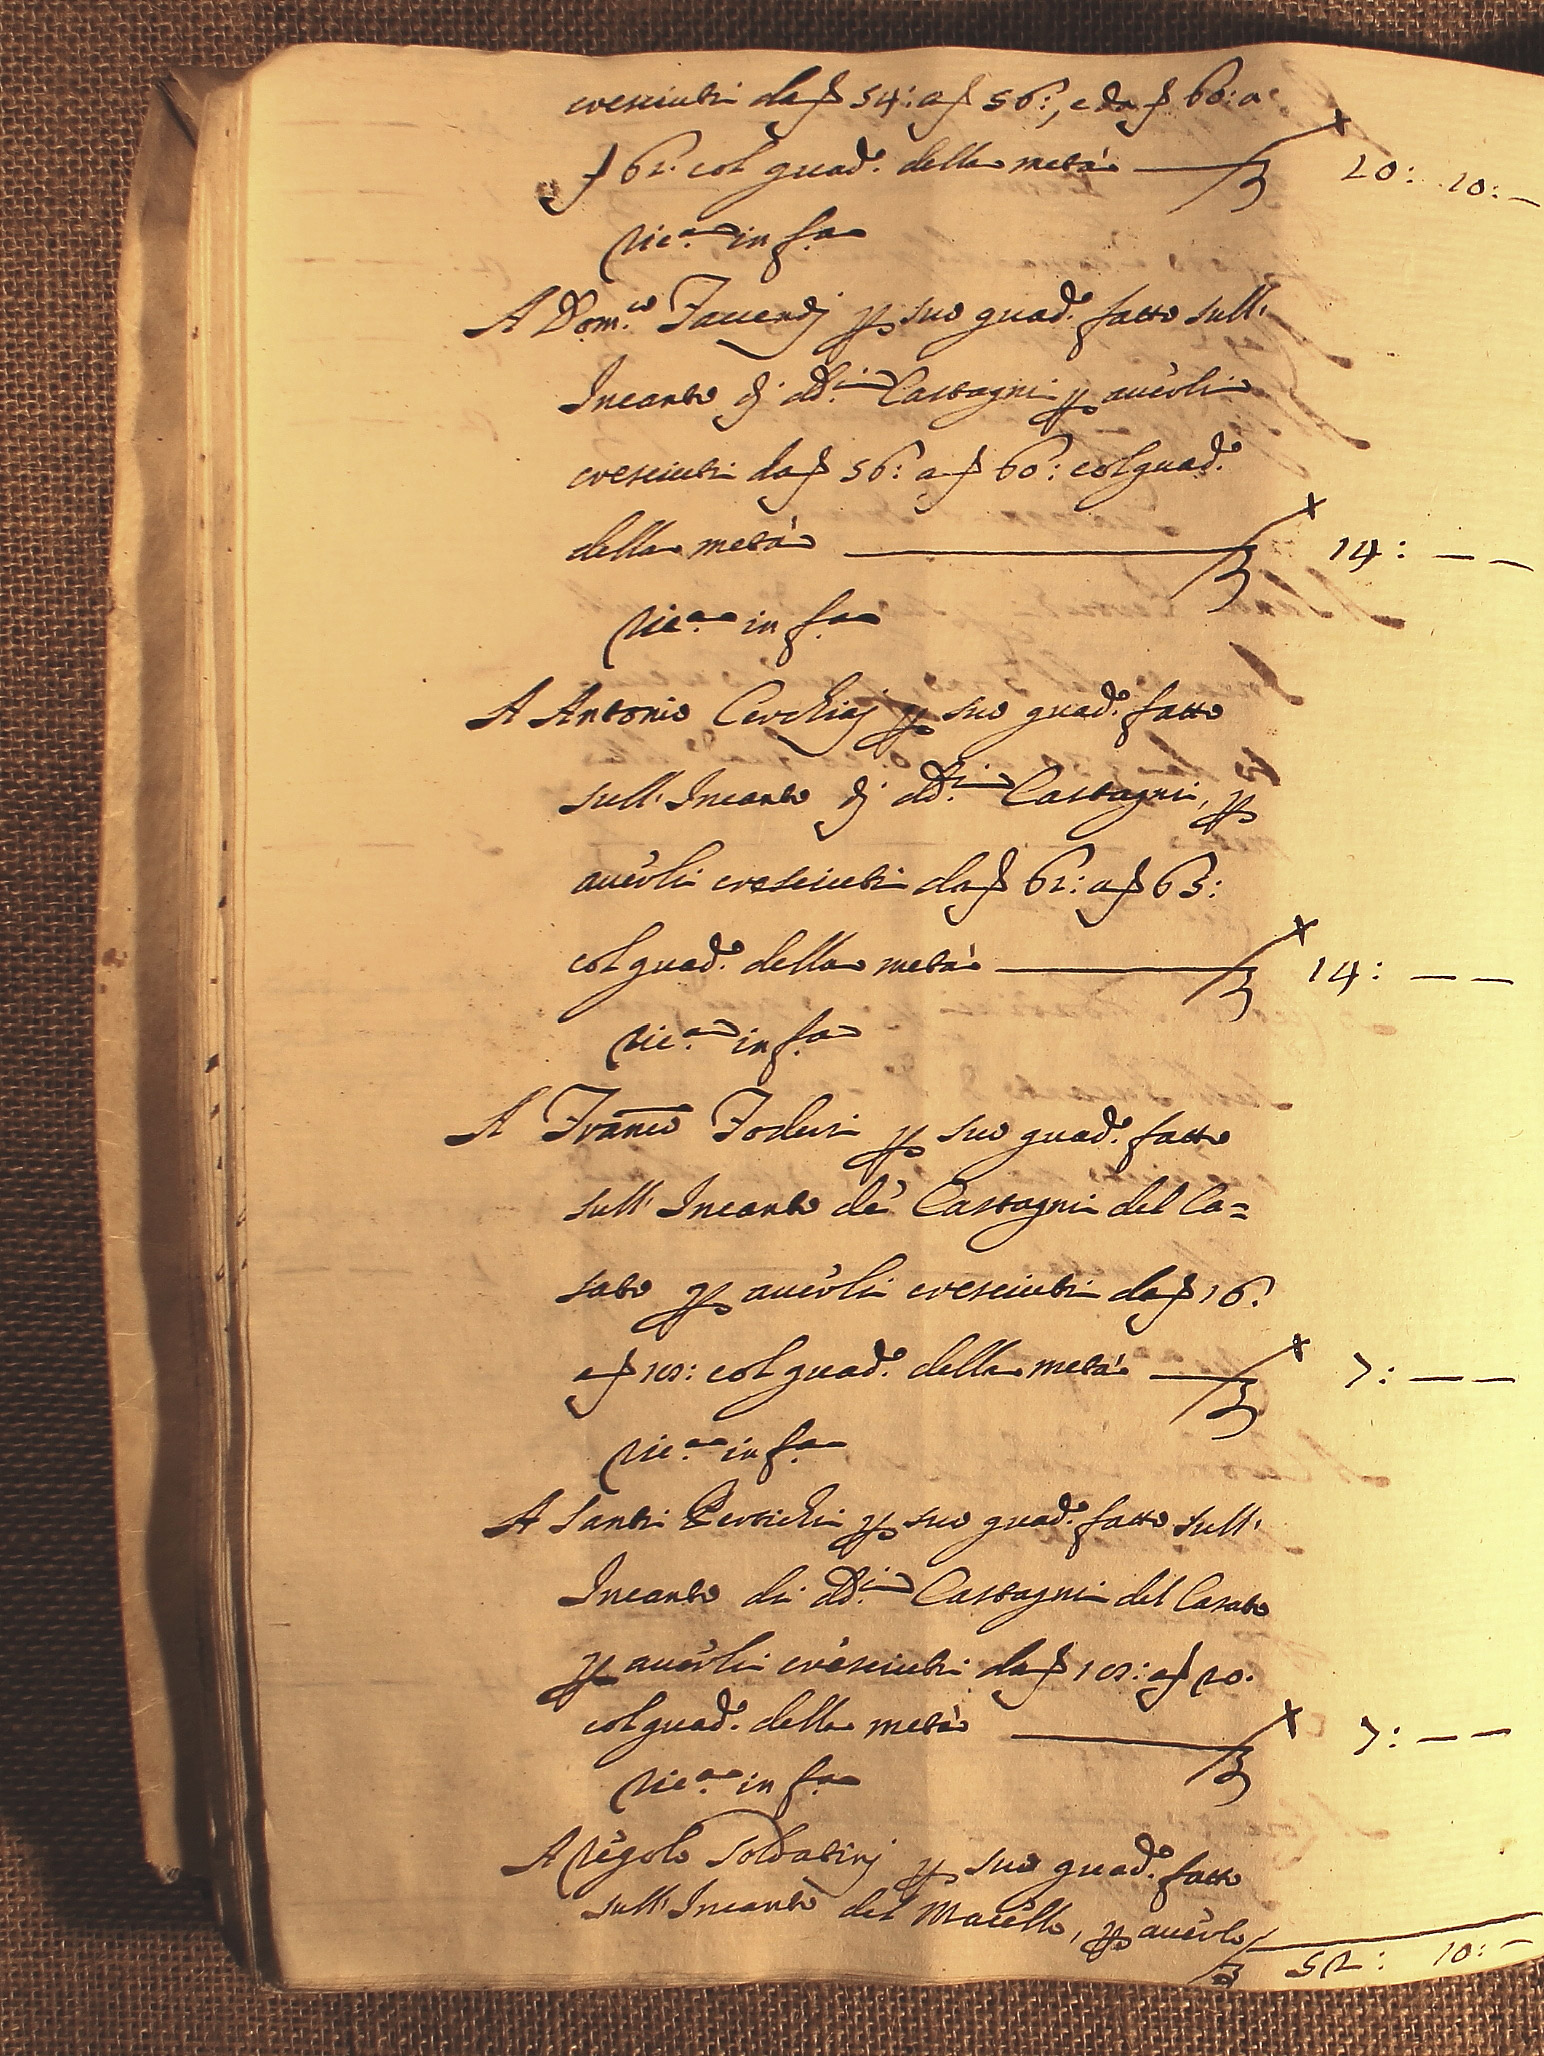 cresciuti da ƒ 54: a ƒ 56:, e da ƒ 60: a
ƒ 62: col guad.o della metà 10: 10: —
Ric.a in f.a
A Dom.co Faccendj p suo guad.o fatto sull'
Incanto dj dd.i Castagni p avèrli
cresciuti da ƒ 56: a ƒ 60: col guad.o
della metà 14: — —
Ric.a in f.a
A Antonio Cerchiaj p suo guad.o fatto
sull' Incanto dj dd.i Castagni, p
avèrli cresciuti da ƒ 62: a ƒ 63:
col guad.o della metà 14: — —
Ric.a in f.a
A Franco p suo guad.o fatto
sull' Incanto dè Castagni del Ca=
sato p avèrli cresciuti da ƒ 16:
a ƒ 18: col guad.o della metà 7: — —
Ric.a in f.a
A Santi p suo guad.o fatto sull'
Incanto di dd.i Castagni del Casato
p avèrli crèsciuti da ƒ 18: a ƒ 20:
col guad.o della metà 7: — —
Ric.a in f.a
A Règolo Soldatinj p suo guad.o fatto
sull' Incanto del Macèllo, p avèrlo
52: 10: —